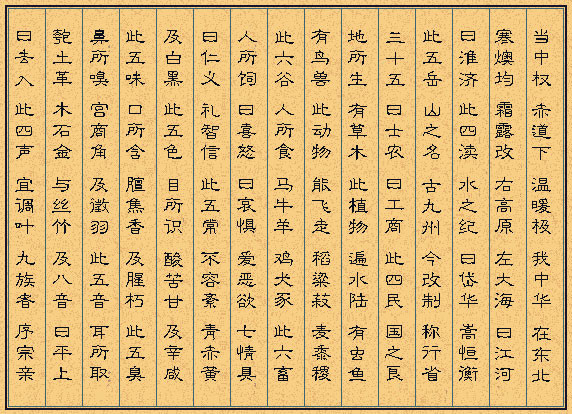 当中权 赤道下 温暖极 我中华 在东北
寒燠均 霜露改 右高原 左大海 曰江河
曰淮济 此四渎 水之纪 曰岱华 嵩恒衡
此五岳 山之名 古九州 今改制 称行省
三十五 曰士农 曰工商 此四民 国之良
地所生 有草木 此植物 遍水陆 有虫鱼
有鸟兽 此动物 能飞走 稻粱菽 麦黍稷
此六谷 人所食 马牛羊 鸡犬豕 此六畜
人所饲 曰喜怒 曰哀惧 爱恶欲 七情具
曰仁义 礼智信 此五常 不容紊 青赤黄
及白黑 此五色 目所识 酸苦甘 及辛咸
此五味 口所含 膻焦香 及腥朽 此五臭
鼻所嗅 宫商角 及徵羽 此五音 耳所取
匏土革 木石金 与丝竹 及八音 曰平上
曰去入 此四声 宜调叶 九族者 序宗亲